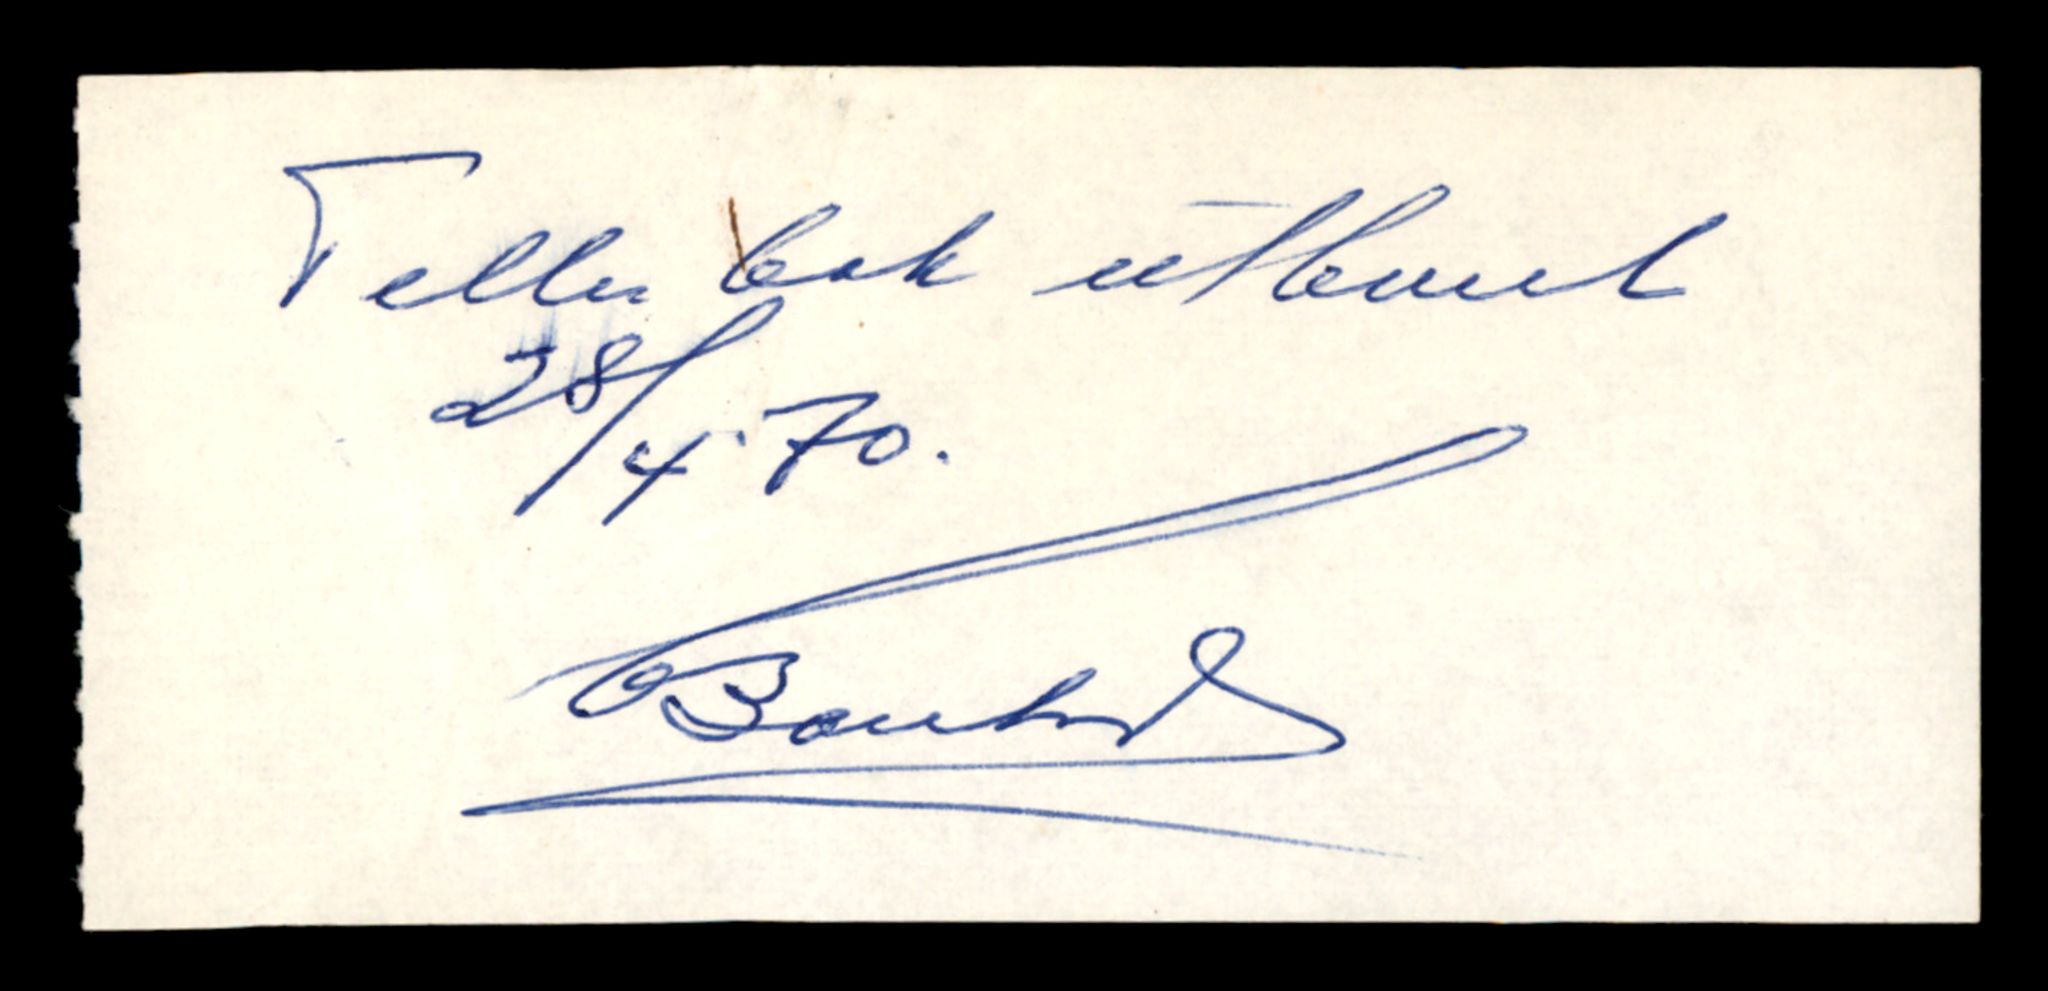 Teller bok utlevert
28/4-70.